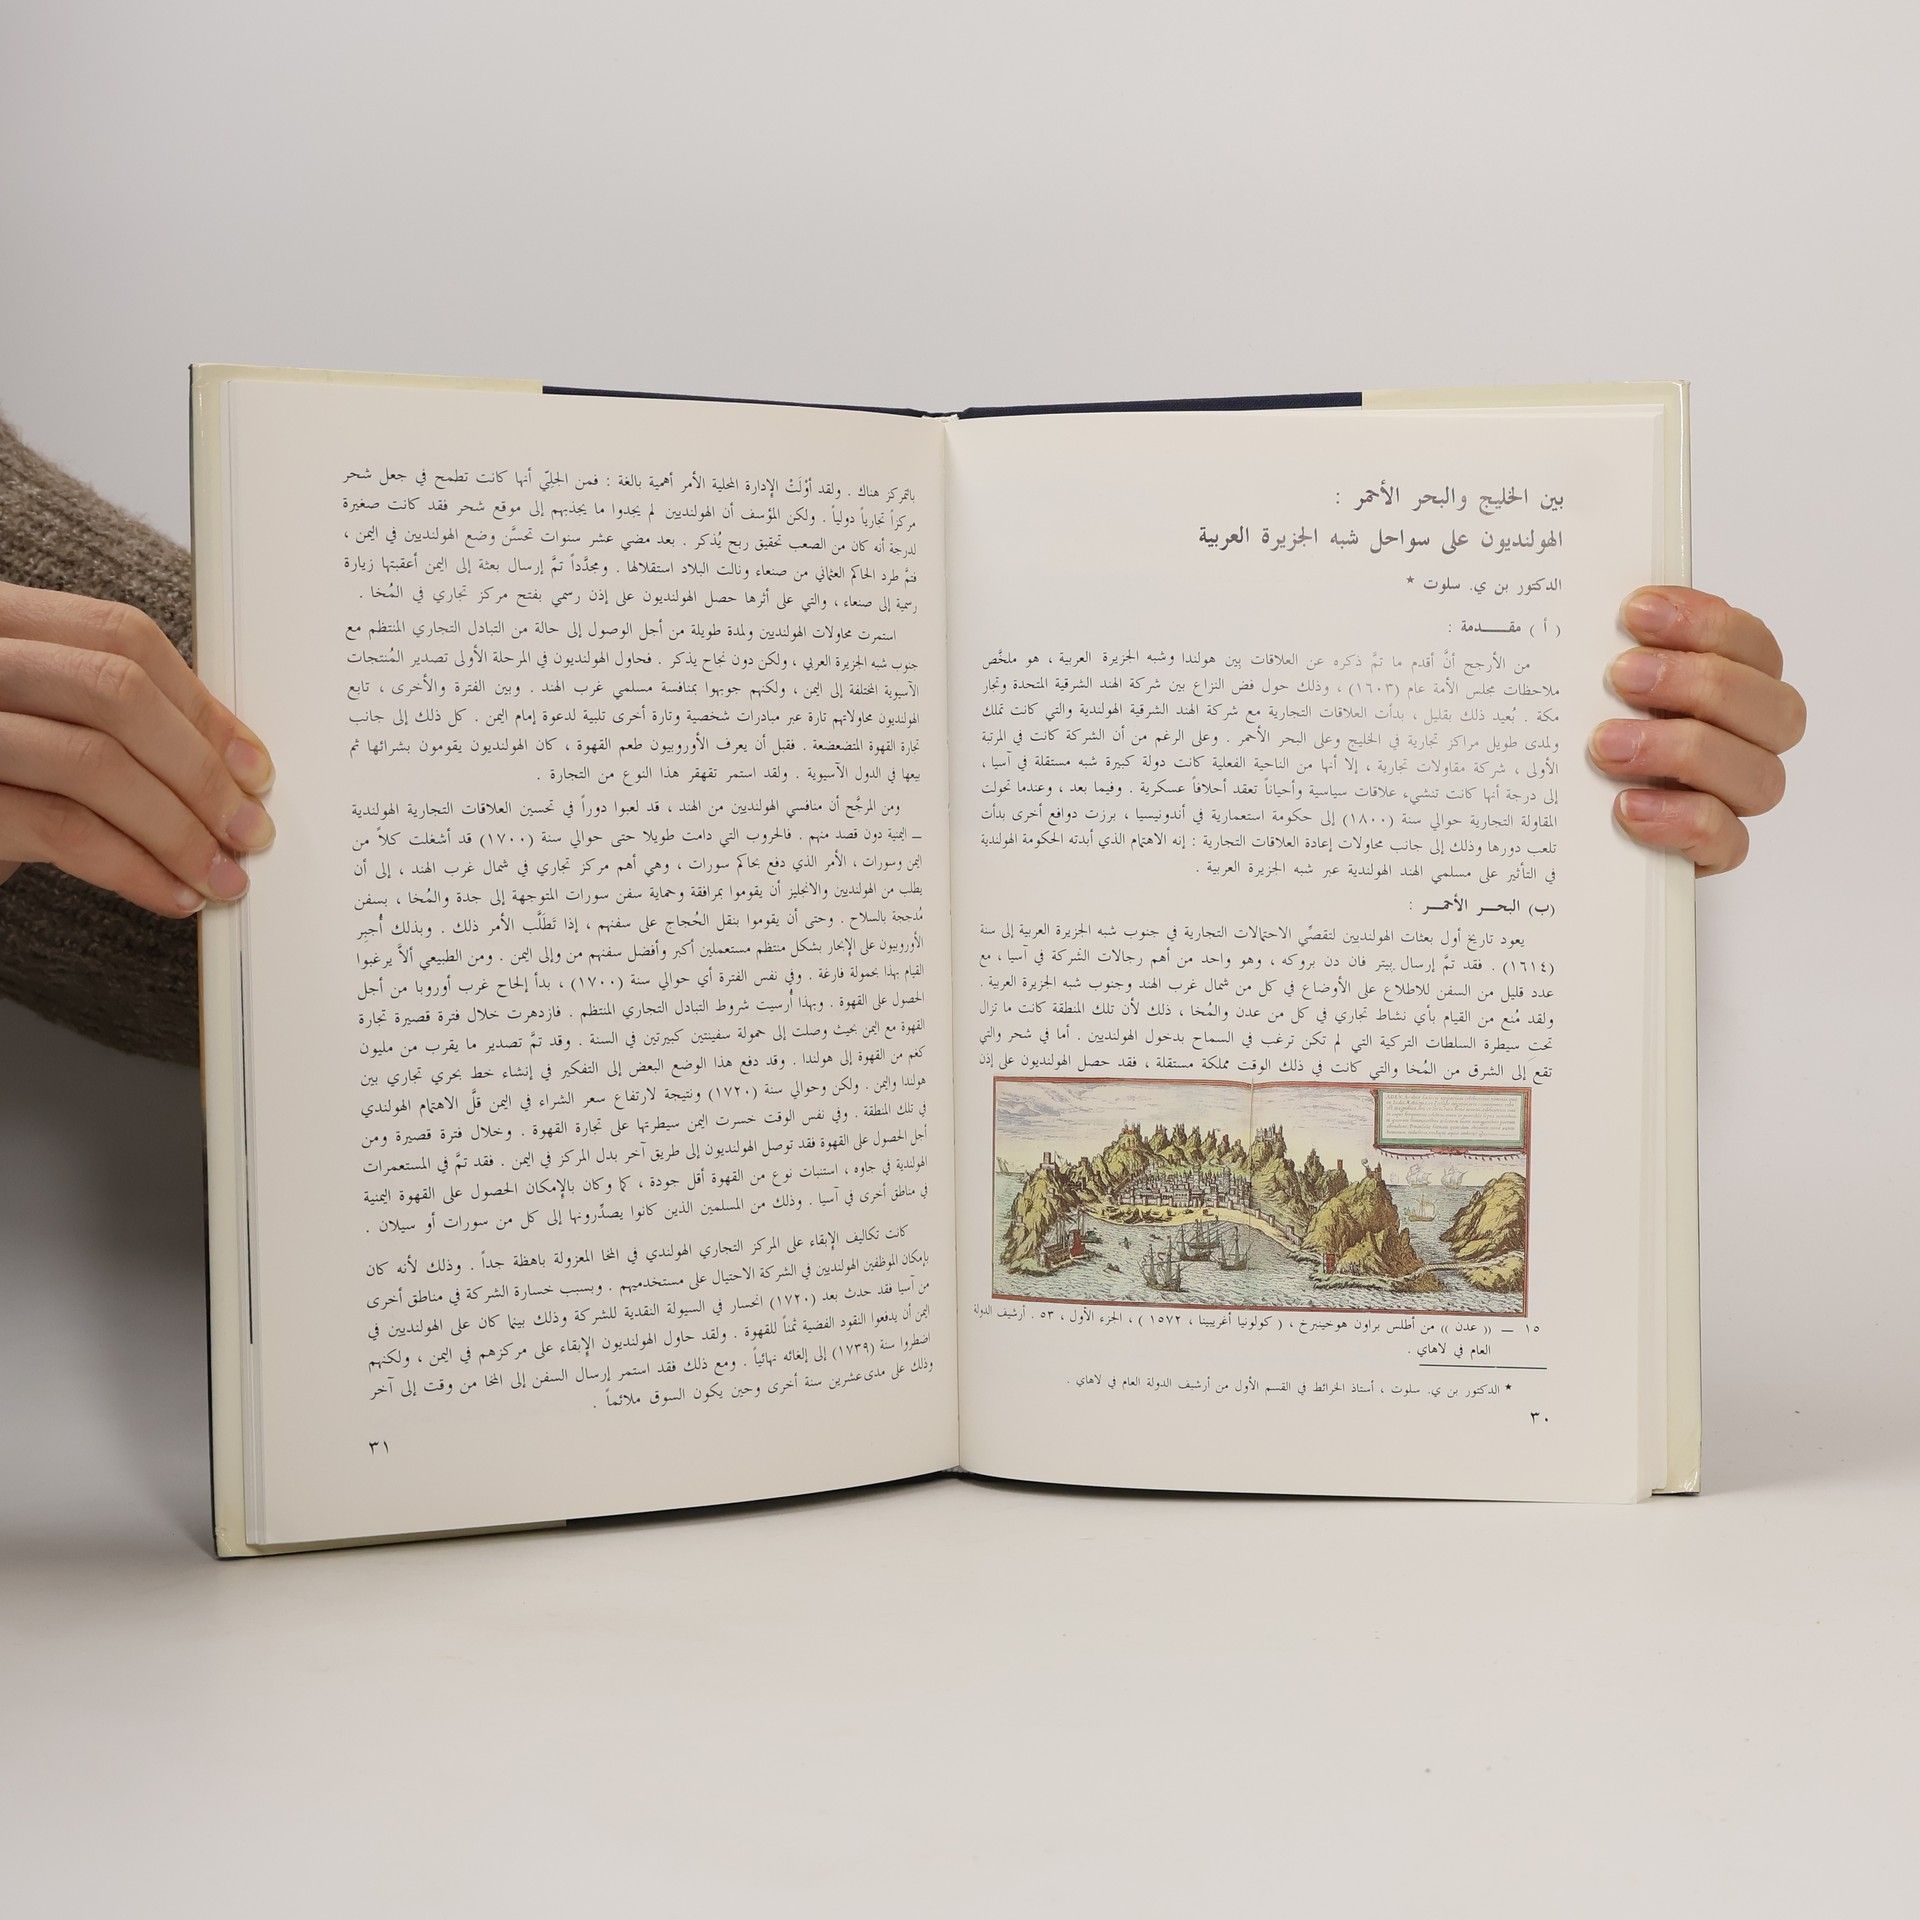 بين الخليج والبحر الأحمر :
الهولنديون على سواحل شبه الجزيرة العربية
الدكتور بن ي. سلوت *
( أ ) مقـــدمة :
من الأرجح أنَّ أقدم ما تمَّ ذكره عن العلاقات بين هولندا وشبه الجزيرة العربية ، هو ملخَّص
ملاحظات مجلس الأمة عام (١٦٠٣) ، وذلك حول فض النزاع بين شركة الهند الشرقية المتحدة وتجار
مكة . بُعيد ذلك بقليل ، بدأت العلاقات التجارية مع شركة الهند الشرقية الهولندية والتي كانت تملك
ولمدى طويل مراكز تجارية في الخليج وعلى البحر الأحمر . وعلى الرغم من أن الشركة كانت في المرتبة
الأولى ، شركة مقاولات تجارية ، إلا أنها من الناحية الفعلية كانت دولة كبيرة شبه مستقلة في آسيا ،
إلى درجة أنها كانت تنشيء علاقات سياسية وأحياناً تعقد أحلافاً عسكرية . وفيما بعد ، وعندما تحولت
المقاولة التجارية حوالي سنة (١٨٠٠) إلى حكومة استعمارية في أندونيسيا ، برزت دوافع أخرى بدأت
تلعب دورها وذلك إلى جانب محاولات إعادة العلاقات التجارية : إنه الاهتمام الذي أبدته الحكومة الهولندية
في التأثير على مسلمي الهند الهولندية عبر شبه الجزيرة العربية .
(ب) البحــر الأحمــر :
يعود تاريخ أول بعثات الهولنديين لتقصِّي الاحتمالات التجارية في جنوب شبه الجزيرة العربية إلى سنة
(١٦١٤) . فقد تمَّ إرسال بيتر فان دن بروكه ، وهو واحد من أهم رجالات الشركة في آسيا ، مع
عدد قليل من السفن للاطلاع على الأوضاع في كل من شمال غرب الهند وجنوب شبه الجزيرة العربية .
ولقد مُنع من القيام بأي نشاط تجاري في كل من عدن والمُخا ، ذلك لأن تلك المنطقة كانت ما تزال
تحت سيطرة السلطات التركية التي لم تكن ترغب في السماح بدخول الهولنديين . أما في شحر والتي
تقع إلى الشرق من المُخا والتي كانت في ذلك الوقت مملكة مستقلة ، فقد حصل الهولنديون على إذن
١٥ ــ (( عدن )) من أطلس براون هوخينبرخ ، ( كولونيا أغريبينا ، ١٥٧٢ ) ، الجزء الأول ، ٥٣ . أرشيف الدولة
العام في لاهاي .
* الدكتور بن ي. سلوت ، أستاذ الخرائط في القسم الأول من أرشيف الدولة العام في لاهاي .
٣٠
بالتمركز هناك . ولقد أوْلَتْ الإدارة المحلية الأمر أهمية بالغة : فمن الجلِيّ أنها كانت تطمح في جعل شحر
مركزاً تجارياً دولياً . ولكن المؤسف أن الهولنديين لم يجدوا ما يجذبهم إلى موقع شحر فقد كانت صغيرة
لدرجة أنه كان من الصعب تحقيق ربح يُذكر . بعد مضي عشر سنوات تحسَّن وضع الهولنديين في اليمن ،
فتمَّ طرد الحاكم العثماني من صنعاء ونالت البلاد استقلالها . ومجدَّداً تمَّ إرسال بعثة إلى اليمن أعقبتها زيارة
رسمية إلى صنعاء ، والتي على أثرها حصل الهولنديون على إذن رسمي بفتح مركز تجاري في المُخا .
استمرت محاولات الهولنديين ولمدة طويلة من أجل الوصول إلى حالة من التبادل التجاري المنتظم مع
جنوب شبه الجزيرة العربي ، ولكن دون نجاح يذكر . فحاول الهولنديون في المرحلة الأولى تصدير المُنتجات
الآسيوية المختلفة إلى اليمن ، ولكنهم جوبهوا بمنافسة مسلمي غرب الهند . وبين الفترة والأخرى ، تابع
الهولنديون محاولاتهم تارة عبر مبادرات شخصية وتارة أخرى تلبية لدعوة إمام اليمن . كل ذلك إلى جانب
تجارة القهوة المتضعضعة . فقبل أن يعرف الأوروبيون طعم القهوة ، كان الهولنديون يقومون بشرائها ثم
بيعها في الدول الآسيوية . ولقد استمر تقهقر هذا النوع من التجارة .
ومن المرجَّح أن منافسي الهولنديين من الهند ، قد لعبوا دوراً في تحسين العلاقات التجارية الهولندية
ــ اليمنية دون قصد منهم . فالحروب التي دامت طويلا حتى حوالي سنة (١٧٠٠) قد أشغلت كلاً من
اليمن وسورات ، الأمر الذي دفع بحاكم سورات ، وهي أهم مركز تجاري في شمال غرب الهند ، إلى أن
يطلب من الهولنديين والانجليز أن يقوموا بمرافقة وحماية سفن سورات المتوجهة إلى جدة والمُخا ، بسفن
مُدججة بالسلاح . وحتى أن يقوموا بنقل الحُجاج على سفنهم ، إذا تَطَلَّب الأمر ذلك . وبذلك أُجبِر
الأوروبيون على الإبحار بشكل منتظم مستعملين أكبر وأفضل سفنهم من وإلى اليمن . ومن الطبيعي ألاَّ يرغبوا
القيام بهذا بحمولة فارغة . وفي نفس الفترة أي حوالي سنة (١٧٠٠) ، بدأ إلحاح غرب أوروبا من أجل
الحصول على القهوة . وبهذا أُرسيت شروط التبادل التجاري المنتظم . فازدهرت خلال فترة قصيرة تجارة
القهوة مع اليمن بحيث وصلت إلى حمولة سفينتين كبيرتين في السنة . وقد تمَّ تصدير ما يقرب من مليون
كغم من القهوة إلى هولندا . وقد دفع هذا الوضع البعض إلى التفكير في إنشاء خط بحري تجاري بين
هولندا واليمن . ولكن وحوالي سنة (١٧٢٠) ونتيجة لارتفاع سعر الشراء في اليمن قلَّ الاهتمام الهولندي
في تلك المنطقة . وفي نفس الوقت خسرت اليمن سيطرتها على تجارة القهوة . وخلال فترة قصيرة ومن
أجل الحصول على القهوة فقد توصل الهولنديون إلى طريق آخر بدل المركز في اليمن . فقد تمَّ في المستعمرات
الهولندية في جاوه ، استنبات نوع من القهوة أقل جودة ، كما وكان بالإمكان الحصول على القهوة اليمنية
في مناطق أخرى في آسيا . وذلك من المسلمين الذين كانوا يصدِّرونها إلى كل من سورات أو سيلان .
كانت تكاليف الإبقاء على المركز التجاري الهولندي في المخا المعزولة باهظة جداً . وذلك لأنه كان
بإمكان الموظفين الهولنديين في الشركة الاحتيال على مستخدميهم . وبسبب خسارة الشركة في مناطق أخرى
من آسيا فقد حدث بعد (١٧٢٠) انحسار في السيولة النقدية للشركة وذلك بينما كان على الهولنديين في
اليمن أن يدفعوا النقود الفضية ثمناً للقهوة . ولقد حاول الهولنديون الإبقاء على مركزهم في اليمن ، ولكنهم
اضطروا سنة (١٧٣٩) إلى إلغائه نهائياً . ومع ذلك فقد استمر إرسال السفن إلى المخا من وقت إلى آخر
وذلك على مدى عشرين سنة أخرى وحين يكون السوق ملائماً .
٣١